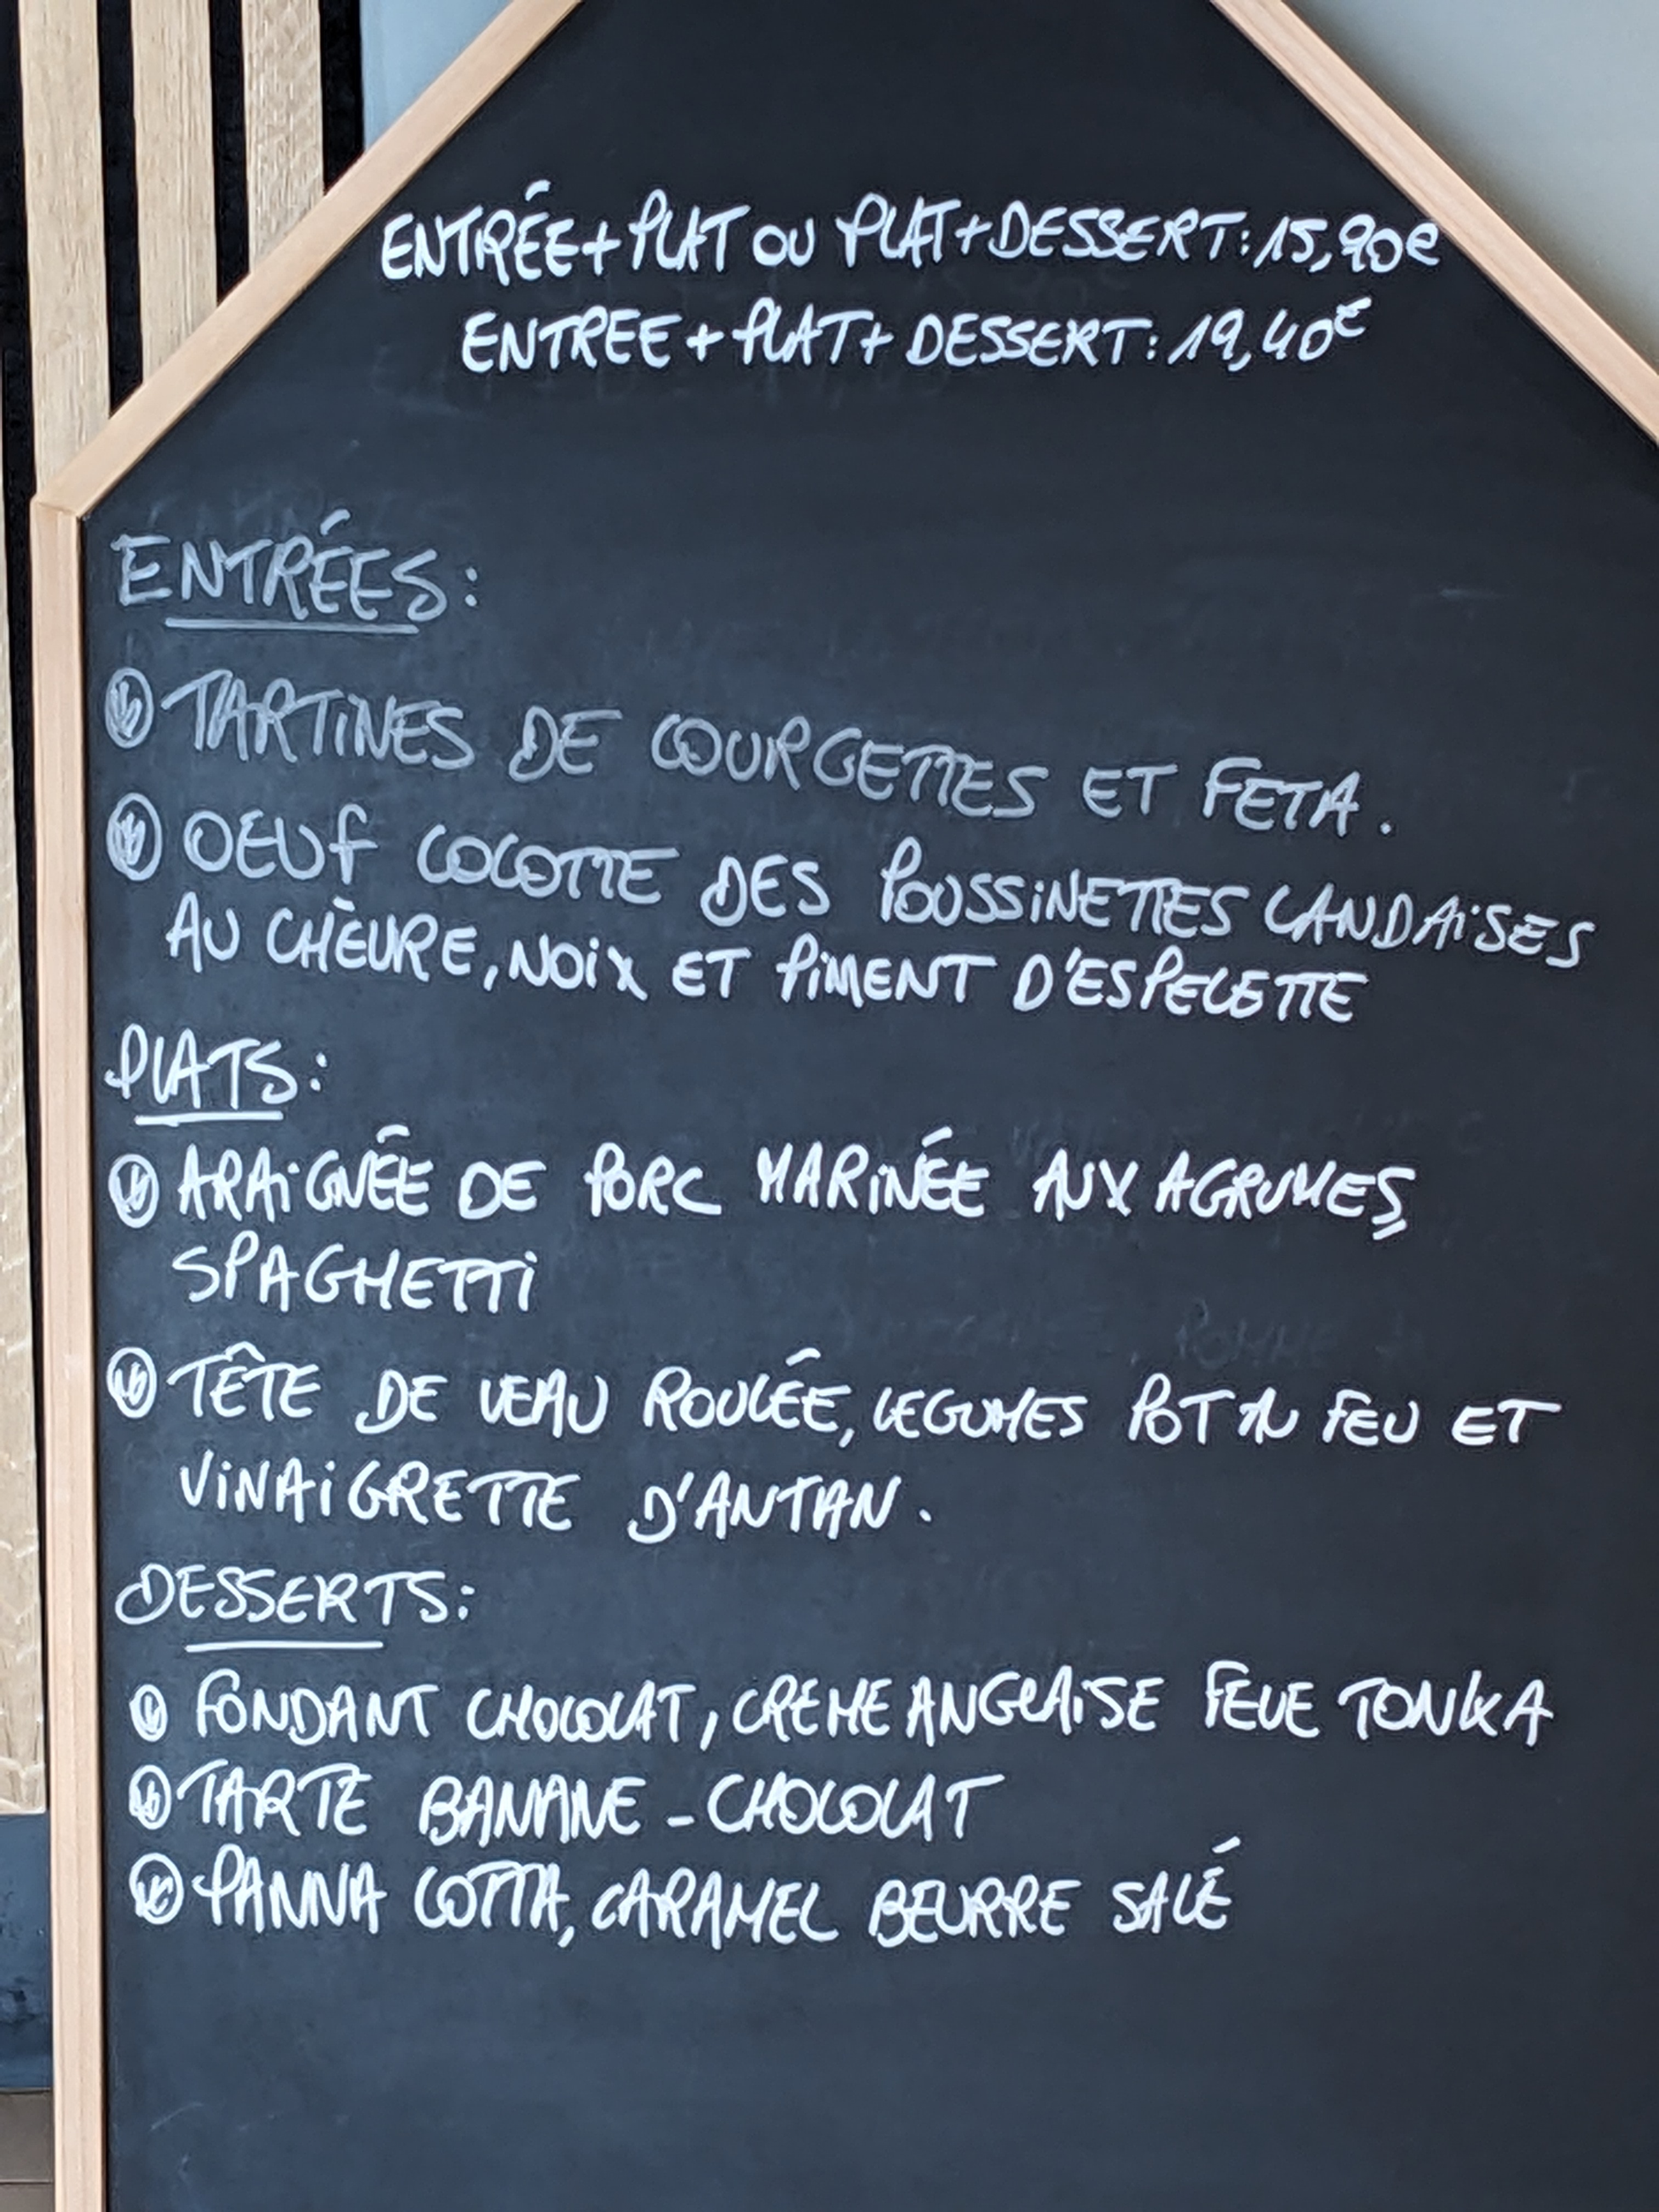 ENTRÉE+PLAT OU PLAT+DESSERT: 15,90€
ENTREE+PLAT+DESSERT: 19,40€
ENTRÉES:
TARTINES DE COURGETTES ET FETA.
OEUF COCOTTE DES POUSSINETTES LANDAISES
AU CHÈVRE, NOIX ET PIMENT D'ESPELETTE
PLATS:
ARAIGNÉE DE PORC MARINÉE AUX AGRUMES,
SPAGHETTI
TÊTE DE VEAU ROULÉE, LEGUMES POT AU FEU ET
VINAIGRETTE D'ANTAN.
DESSERTS:
FONDANT CHOCOLAT, CREME ANGLAISE FEVE TONKA
TARTE BANANE-CHOCOLAT
PANNA COTTA, CARAMEL BEURRE SALÉ